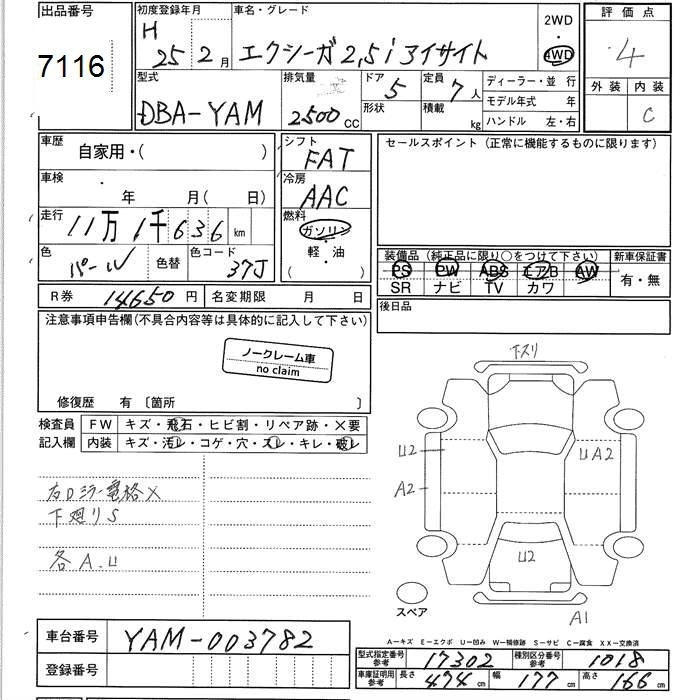 出品番号
7116
初度登録年月
H
25 2月
車名・グレード
エクシーガ2,5iアイサイト
2WD
・
4WD
評価点
4
外装 内装
C
型式
DBA-YAM
排気量
2500cc
ドア 5
形状
定員 7人
積載 kg
ディーラー・並 行
モデル年式 年
ハンドル 左・右
車歴
自家用・( )
車検
年 月( 日)
走行
11万1千636km
色
パール
色替
色コード
37J
シフト
FAT
冷房
AAC
燃料
ガソリン
・
軽・油
セールスポイント (正常に機能するものに限ります)
装備品 (純正品に限り○をつけて下さい)
PS PW ABS エアB AW
SR ナビ TV カワ
新車保証書
有・無
R券 14650円
名変期限 月 日
後日品
注意事項申告欄(不具合内容等は具体的に記入して下さい)
ノークレーム車
no claim
修復歴 有 〔箇所 〕
検査員
記入欄
FW キズ・飛石・ヒビ割・リペア跡・X要
内装 キズ・汚レ・コゲ・穴・スレ・キレ・破レ
右Dミラー電格X
下廻りS
各A.U
下スリ
U2
A2
UA2
U2
A1
スペア
A-キズ E-エクボ U-凹み W-補修跡 S-サビ C-腐食 XX-交換済
車台番号 YAM-003782
登録番号
型式指定番号
参考 17302
種別区分番号
参考 1018
車庫証明用
参考
長さ 474cm 幅 177cm 高さ 166cm